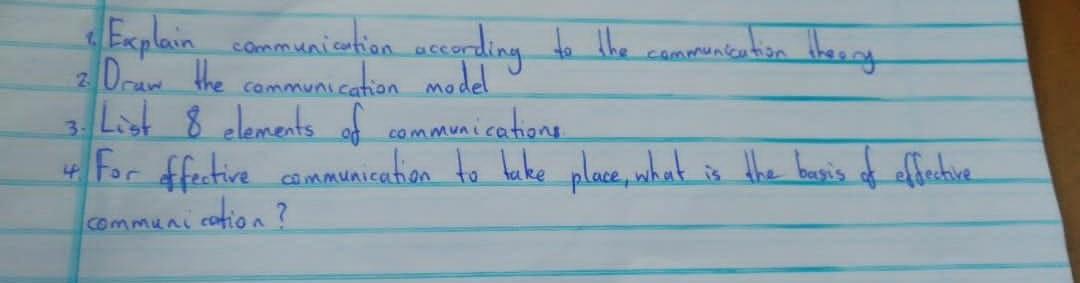 1. Explain communication according to the communication theory
2. Draw the communication model
3. List 8 elements of communications.
4. For effective communication to take place, what is the basis of effective
communication?